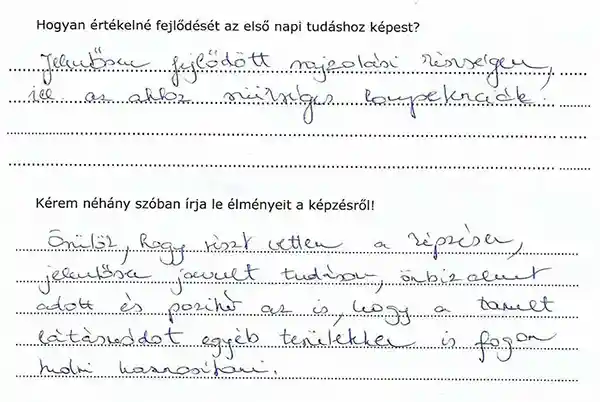 Hogyan értékelné fejlődését az első napi tudáshoz képest?
Jelentősen fejlődött rajzolási készségem,
ill. az ahhoz szükséges kompetenciák.
Kérem néhány szóban írja le élményeit a képzésről!
Örülök, hogy részt vettem a képzésen,
jelentősen javult tudásom, önbizalmat
adott és pozitív az is, hogy a tanult
látásmódot egyéb területeken is fogom
tudni hasznosítani.